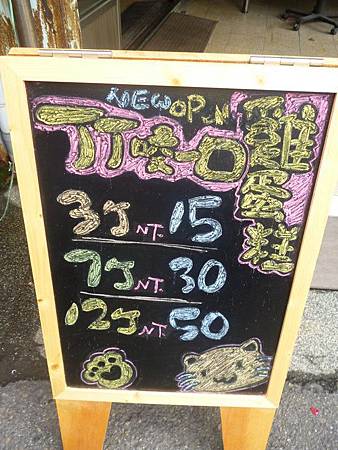 NEW OPEN
丁丁咬一口
雞蛋糕
3個 NT. 15
7個 NT. 30
12個 NT 50